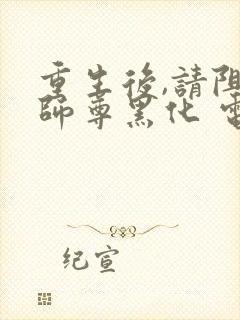 重生後,請阻
師尊黑化 電
紀宣